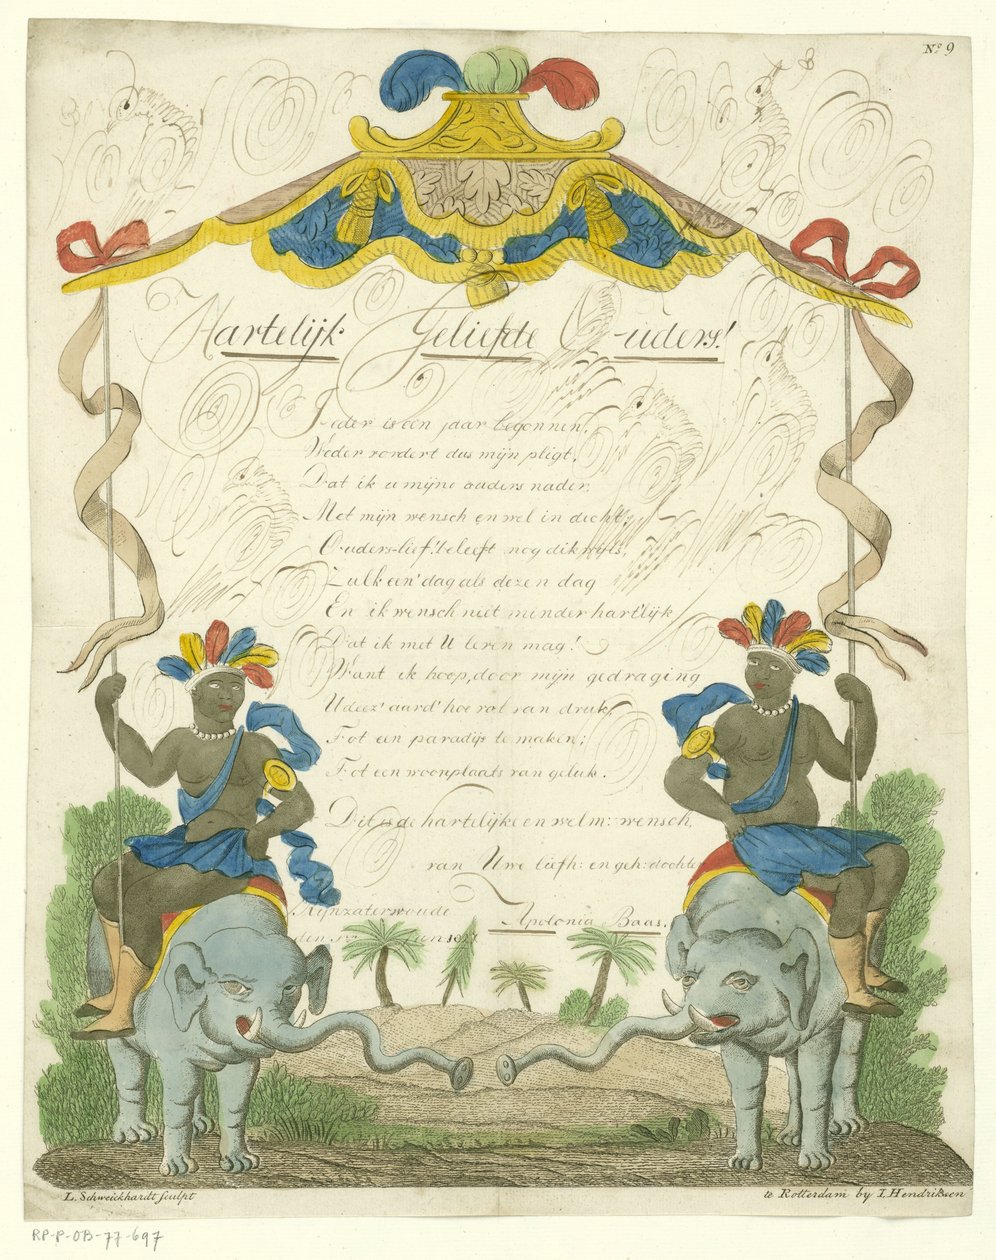 No 9
Hartelijk Geliefde Ouders!
Ieder is een jaar begonnen,
Weder vordert dus mijn pligt,
Dat ik u mijne ouders nader;
Met mijn wensch en wel in dicht;
Ouders-lief! beleeft nog dikwijls,
Zulk een' dag als dezen dag
En ik wensch niet minder hart'lijk
Dat ik met U leven mag!
Want ik hoop, door mijn gedraging
U deez' aard' hoe vol van druk,
Tot een paradijs te maken;
Tot een woonplaats van geluk.
Dit is de hartelijke en welm: wensch,
van Uwe liefh: en geh: dochter
Rijnzaterwoude Apolonia Baas.
den
L. Schweickhardt sculpt te Rotterdam by I. Hendriksen
RP-P-OB-77-697